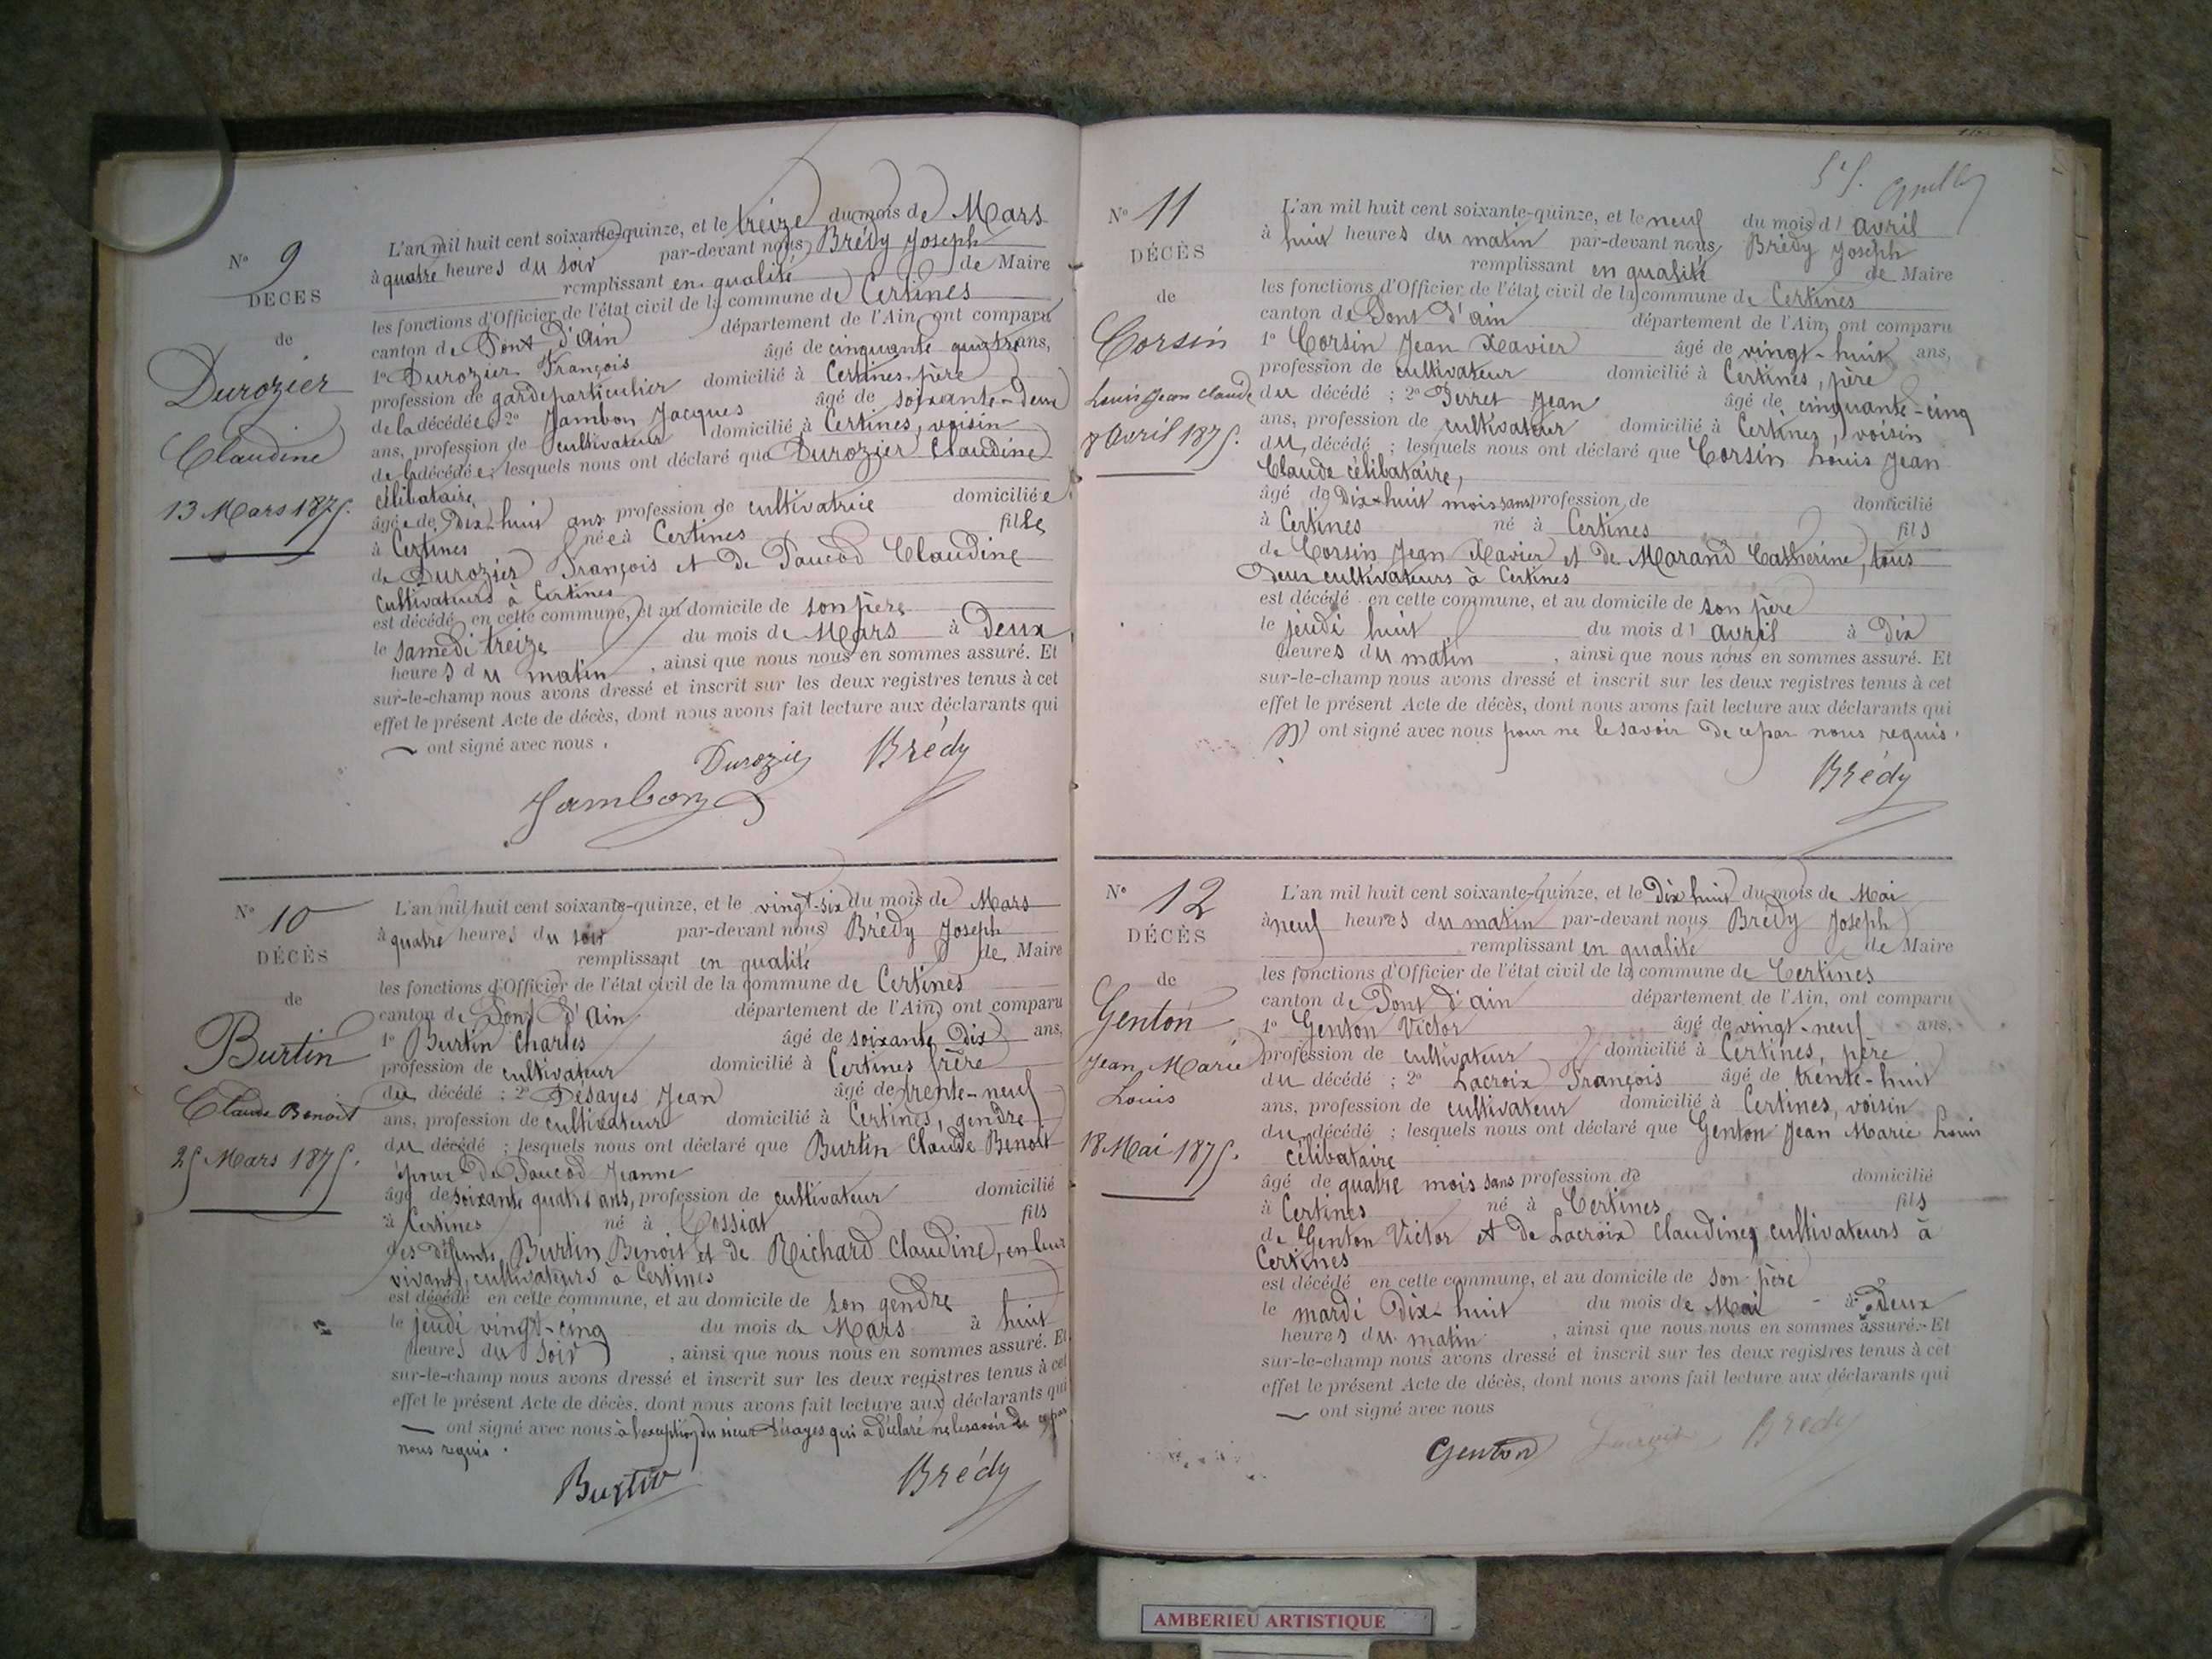 N° 9
DÉCÈS
de
Durozier
Claudine
13 Mars 1875.
L'an mil huit cent soixante-quinze, et le treize du mois de Mars
à quatre heures du soir par-devant nous Brédy Joseph
remplissant en qualité de Maire
les fonctions d'Officier de l'état civil de la commune de Certines
canton de Pont d'Ain département de l'Ain, ont comparu
1° Durozier François âgé de cinquante quatre ans,
profession de garde particulier domicilié à Certines, père
de la décédée 2° Jambon Jacques âgé de soixante-deux
ans, profession de cultivateur domicilié à Certines, voisin
de la décédée ; lesquels nous ont déclaré que Durozier Claudine
célibataire
âgée de Dix-huit ans profession de cultivatrice domiciliée
à Certines née à Certines fille
de Durozier François et de Paucod Claudine
cultivateurs à Certines
est décédé en cette commune, et au domicile de son père
le samedi treize du mois de Mars à Deux
heures du matin, ainsi que nous nous en sommes assuré. Et
sur-le-champ nous avons dressé et inscrit sur les deux registres tenus à cet
effet le présent Acte de décès, dont nous avons fait lecture aux déclarants qui
— ont signé avec nous.
Durozier Brédy
Jambon
N° 10
DÉCÈS
de
Burtin
Claude Benoit
25 Mars 1875.
L'an mil huit cent soixante-quinze, et le vingt-six du mois de Mars
à quatre heures du soir par-devant nous Brédy Joseph
remplissant en qualité de Maire
les fonctions d'Officier de l'état civil de la commune de Certines
canton de Pont d'Ain département de l'Ain, ont comparu
1° Burtin Charles âgé de soixante Dix ans,
profession de cultivateur domicilié à Certines frère
du décédé ; 2° Désayes Jean âgé de trente-neuf
ans, profession de cultivateur domicilié à Certines, gendre
du décédé ; lesquels nous ont déclaré que Burtin Claude Benoit
époux de Paucod Jeanne
âgé de soixante quatre ans, profession de cultivateur domicilié
à Certines né à Cossiat fils
des défunts Burtin Benoit et de Richard Claudine, en leur
vivant, cultivateurs à Certines
est décédé en cette commune, et au domicile de son gendre
le jeudi vingt-cinq du mois de Mars à huit
heures du soir, ainsi que nous nous en sommes assuré. Et
sur-le-champ nous avons dressé et inscrit sur les deux registres tenus à cet
effet le présent Acte de décès, dont nous avons fait lecture aux déclarants qui
— ont signé avec nous à l'exception du sieur Désayes qui a déclaré ne le savoir de ce par
nous requis.
Burtin Brédy
N° 11
DÉCÈS
de
Corsin
Louis Jean Claude
8 Avril 1875.
L'an mil huit cent soixante-quinze, et le neuf du mois d'avril
à huit heures du matin par-devant nous Brédy Joseph
remplissant en qualité de Maire
les fonctions d'Officier de l'état civil de la commune de Certines
canton de Pont d'ain département de l'Ain, ont comparu
1° Corsin Jean Xavier âgé de vingt-huit ans,
profession de cultivateur domicilié à Certines, père
du décédé ; 2° Perret Jean âgé de cinquante-cinq
ans, profession de cultivateur domicilié à Certines, voisin
du décédé ; lesquels nous ont déclaré que Corsin Louis Jean
Claude célibataire,
âgé de Dix-huit mois sans profession de domicilié
à Certines né à Certines fils
de Corsin Jean Xavier et de Marand Catherine, tous
deux cultivateurs à Certines
est décédé en cette commune, et au domicile de son père
le jeudi huit du mois d'avril à Dix
heures du matin, ainsi que nous nous en sommes assuré. Et
sur-le-champ nous avons dressé et inscrit sur les deux registres tenus à cet
effet le présent Acte de décès, dont nous avons fait lecture aux déclarants qui
n' ont signé avec nous pour ne le savoir de ce par nous requis.
Brédy
N° 12
DÉCÈS
de
Genton
Jean Marie
Louis
18 Mai 1875.
L'an mil huit cent soixante-quinze, et le Dix huit du mois de Mai
à neuf heures du matin par-devant nous Brédy Joseph
remplissant en qualité de Maire
les fonctions d'Officier de l'état civil de la commune de Certines
canton de Pont d'ain département de l'Ain, ont comparu
1° Genton Victor âgé de vingt-neuf ans,
profession de cultivateur domicilié à Certines, père
du décédé ; 2° Lacroix François âgé de trente-huit
ans, profession de cultivateur domicilié à Certines, voisin
du décédé ; lesquels nous ont déclaré que Genton Jean Marie Louis
célibataire
âgé de quatre mois sans profession de domicilié
à Certines né à Certines fils
de Genton Victor et de Lacroix Claudine, cultivateurs à
Certines
est décédé en cette commune, et au domicile de son père
le mardi Dix-huit du mois de Mai à Deux
heures du matin, ainsi que nous nous en sommes assuré. Et
sur-le-champ nous avons dressé et inscrit sur les deux registres tenus à cet
effet le présent Acte de décès, dont nous avons fait lecture aux déclarants qui
— ont signé avec nous
Genton Lacroix Brédy
AMBERIEU ARTISTIQUE